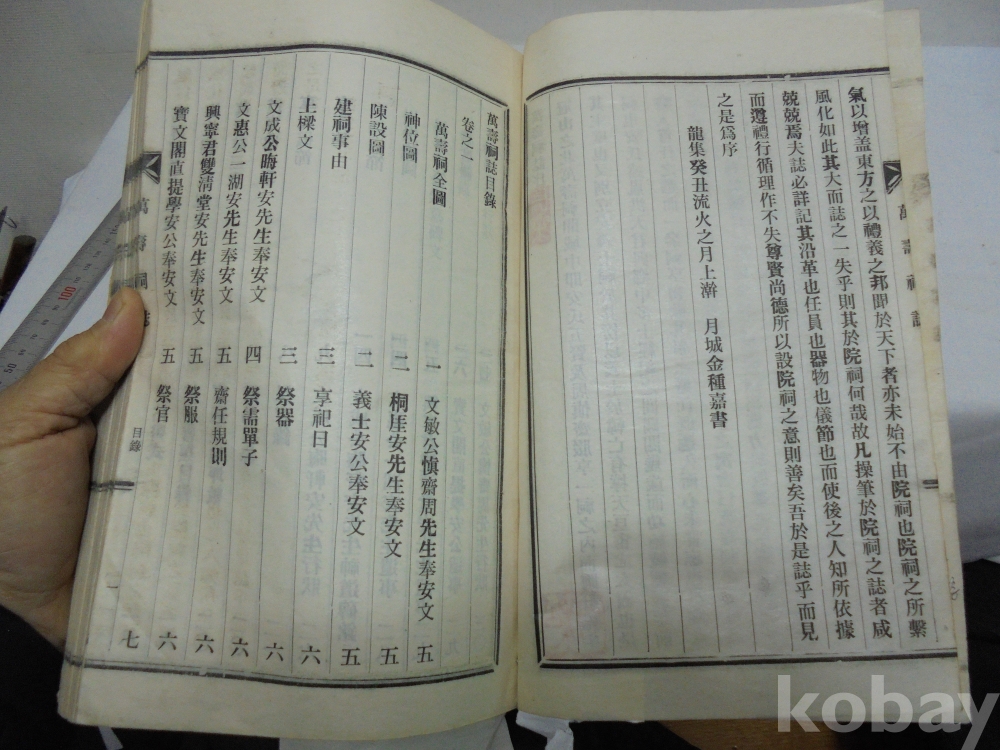 氣以增盖東方之以禮義之邦卽於天下者亦未始不由院祠也院祠之所繫
風化如此其大而誌之一失乎則其於院祠何哉故凡操筆於院祠之誌者咸
兢兢焉夫誌必詳記其沿革也任員也器物也儀節也而使後之人知所依據
而遵禮行循理作不失尊賢尚德所以設院祠之意則善矣吾於是誌乎而見
之是爲序
龍集癸丑流火之月上澣 月城金種嘉書
萬壽祠誌
萬壽祠誌目錄
卷之一
萬壽祠全圖 一
神位圖 二
陳設圖 二
建祠事由 二
上樑文 三
文成公晦軒安先生奉安文 三
文惠公一湖安先生奉安文 四
興寧君雙淸堂安先生奉安文 五
寶文閣直提學安公奉安文 五
文敏公愼齋周先生奉安文 五
桐厓安先生奉安文 五
義士安公奉安文 五
享祀日 六
祭器 六
祭需單子 六
齋任規則 六
祭服 六
祭官 七
萬壽祠誌
目錄
一
kobay